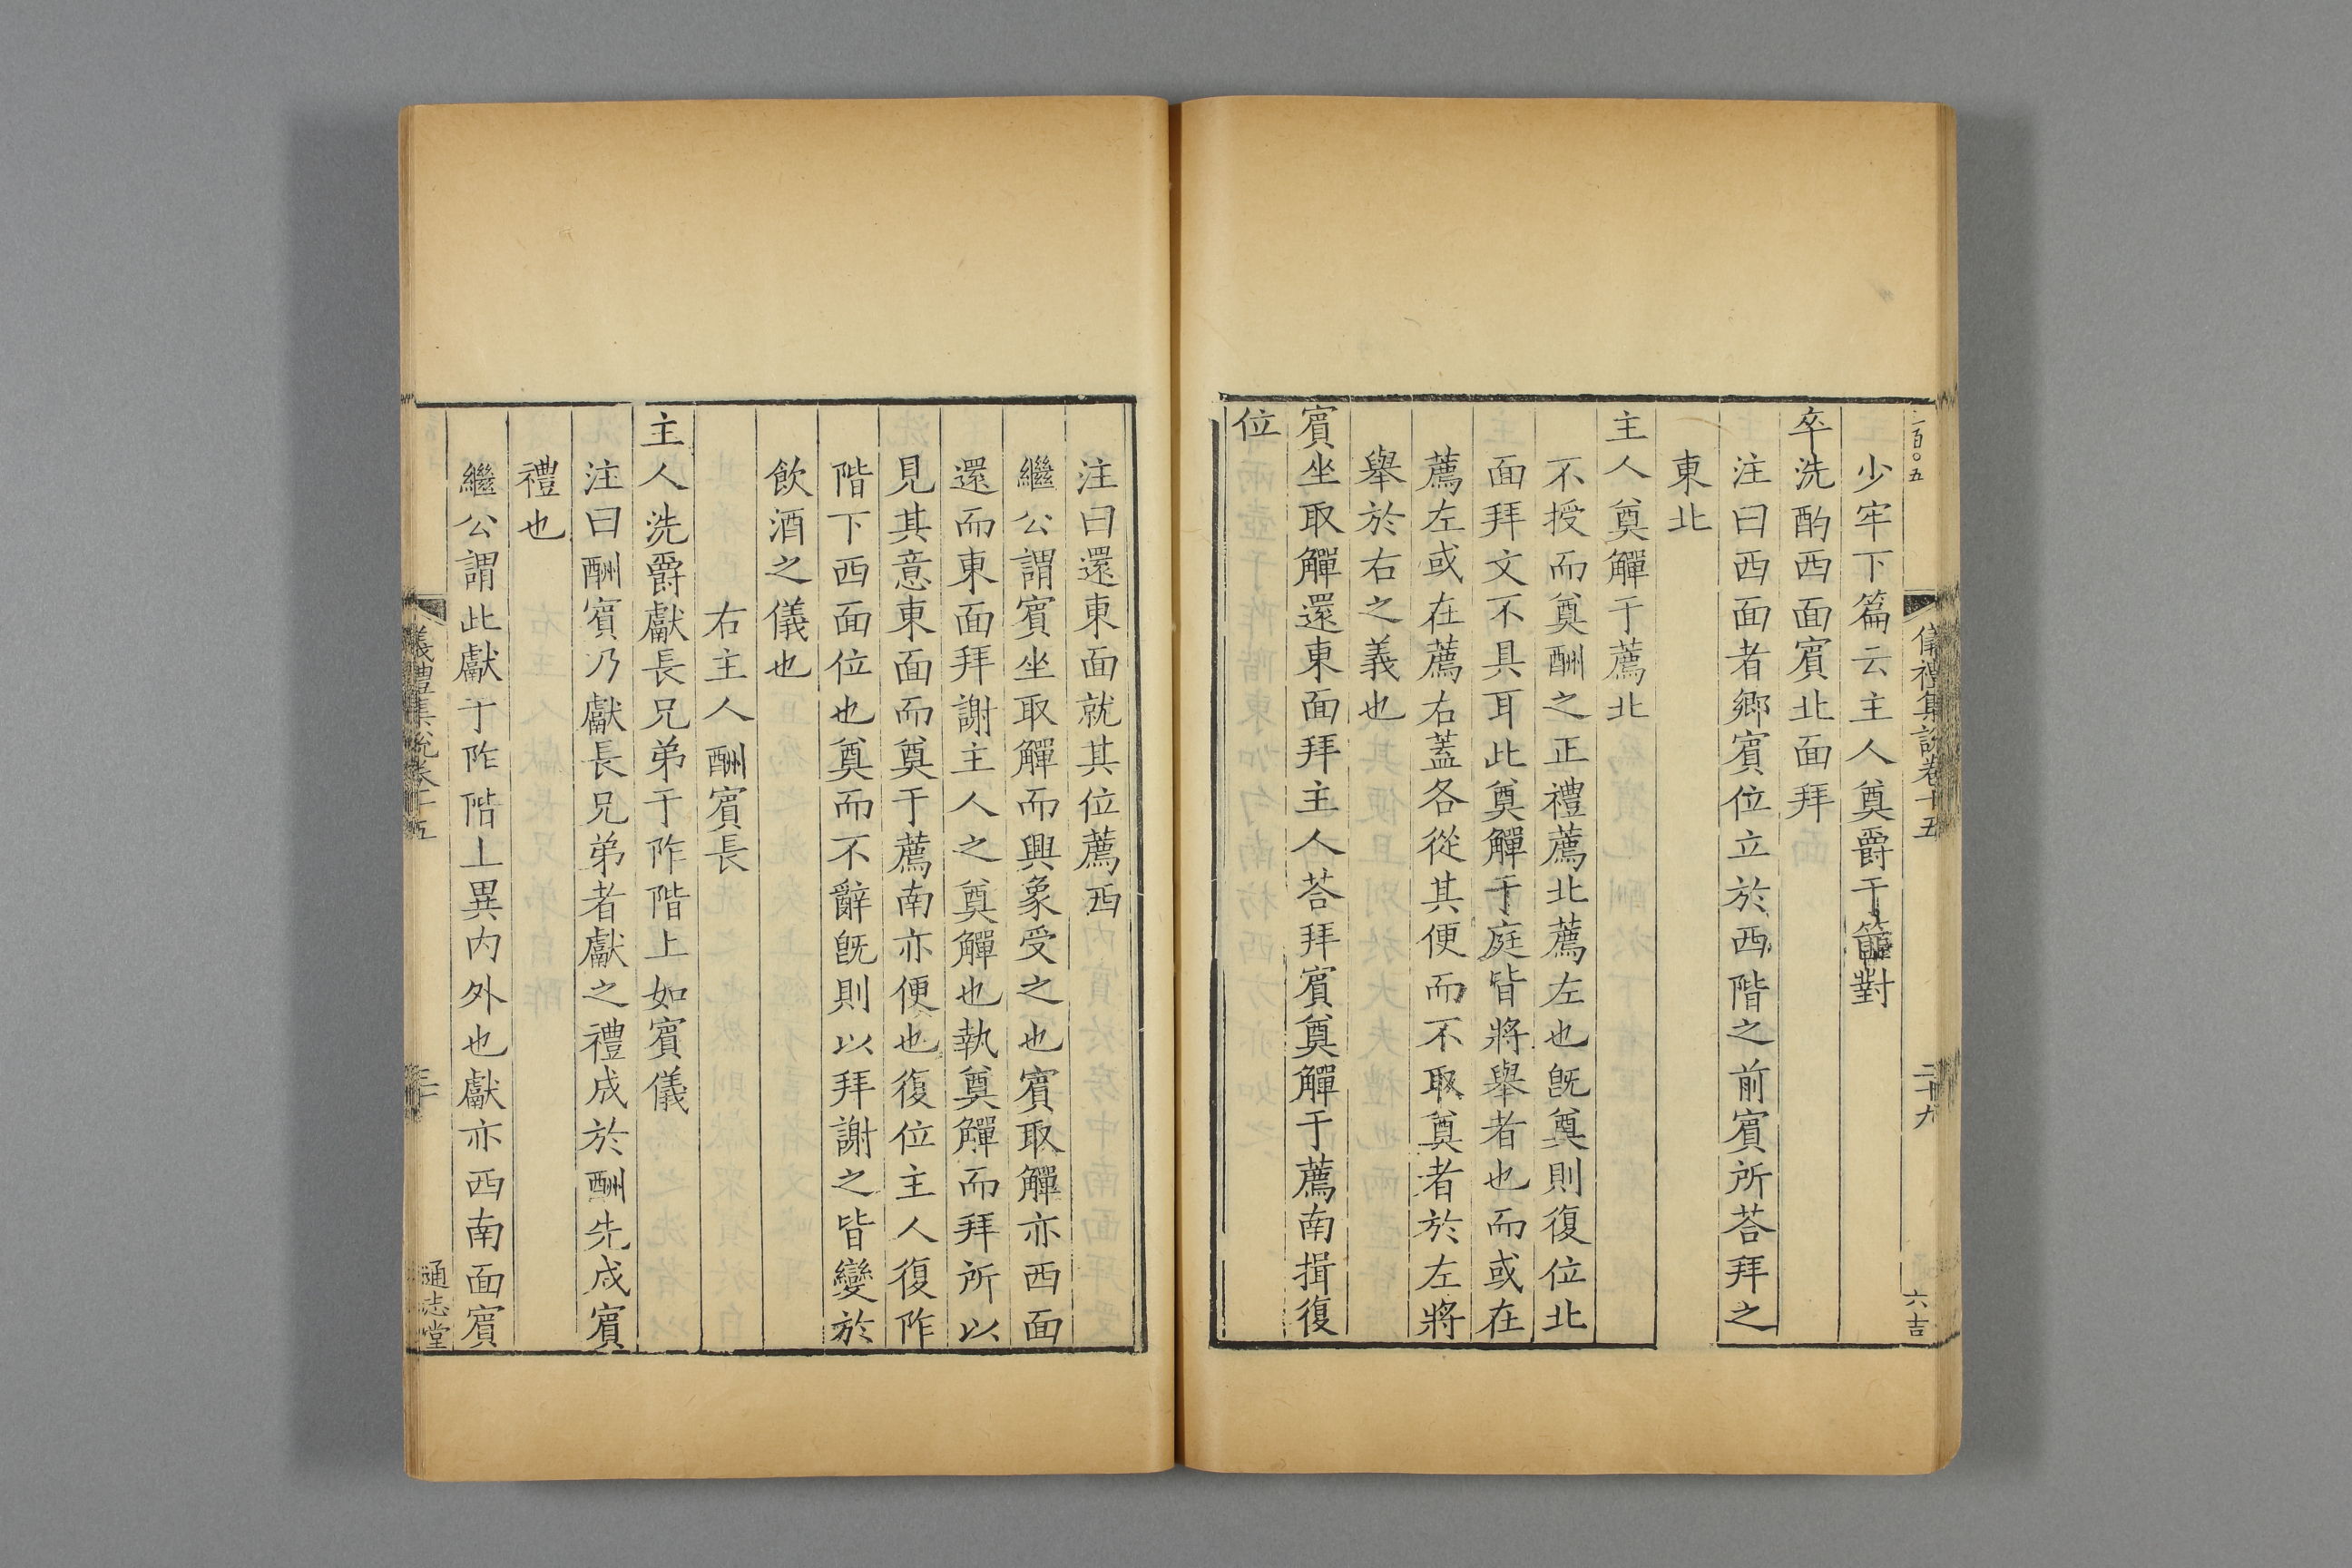 一百〇五
儀禮集說卷十五
二十九
六吉
少牢下篇云主人奠爵于篚對
卒洗酌西面賓北面拜
注曰西面者鄉賓位立於西階之前賓所荅拜之
東北
主人奠觶于薦北
不授而奠酬之正禮薦北薦左也旣奠則復位北
面拜文不具耳此奠觶于庭皆將舉者也而或在
薦左或在薦右蓋各從其便而不取奠者於左將
舉於右之義也
賓坐取觶還東面拜主人荅拜賓奠觶于薦南揖復
位
注曰還東面就其位薦西
繼公謂賓坐取觶而興象受之也賓取觶亦西面
還而東面拜謝主人之奠觶也執奠觶而拜所以
見其意東面而奠于薦南亦便也復位主人復阼
階下西面位也奠而不辭旣則以拜謝之皆變於
飮酒之儀也
右主人酬賓長
主人洗爵獻長兄弟于阼階上如賓儀
注曰酬賓乃獻長兄弟者獻之禮成於酬先成賓
禮也
繼公謂此獻于阼階上異内外也獻亦西南面賓
儀禮集說卷十五
三十
通志堂